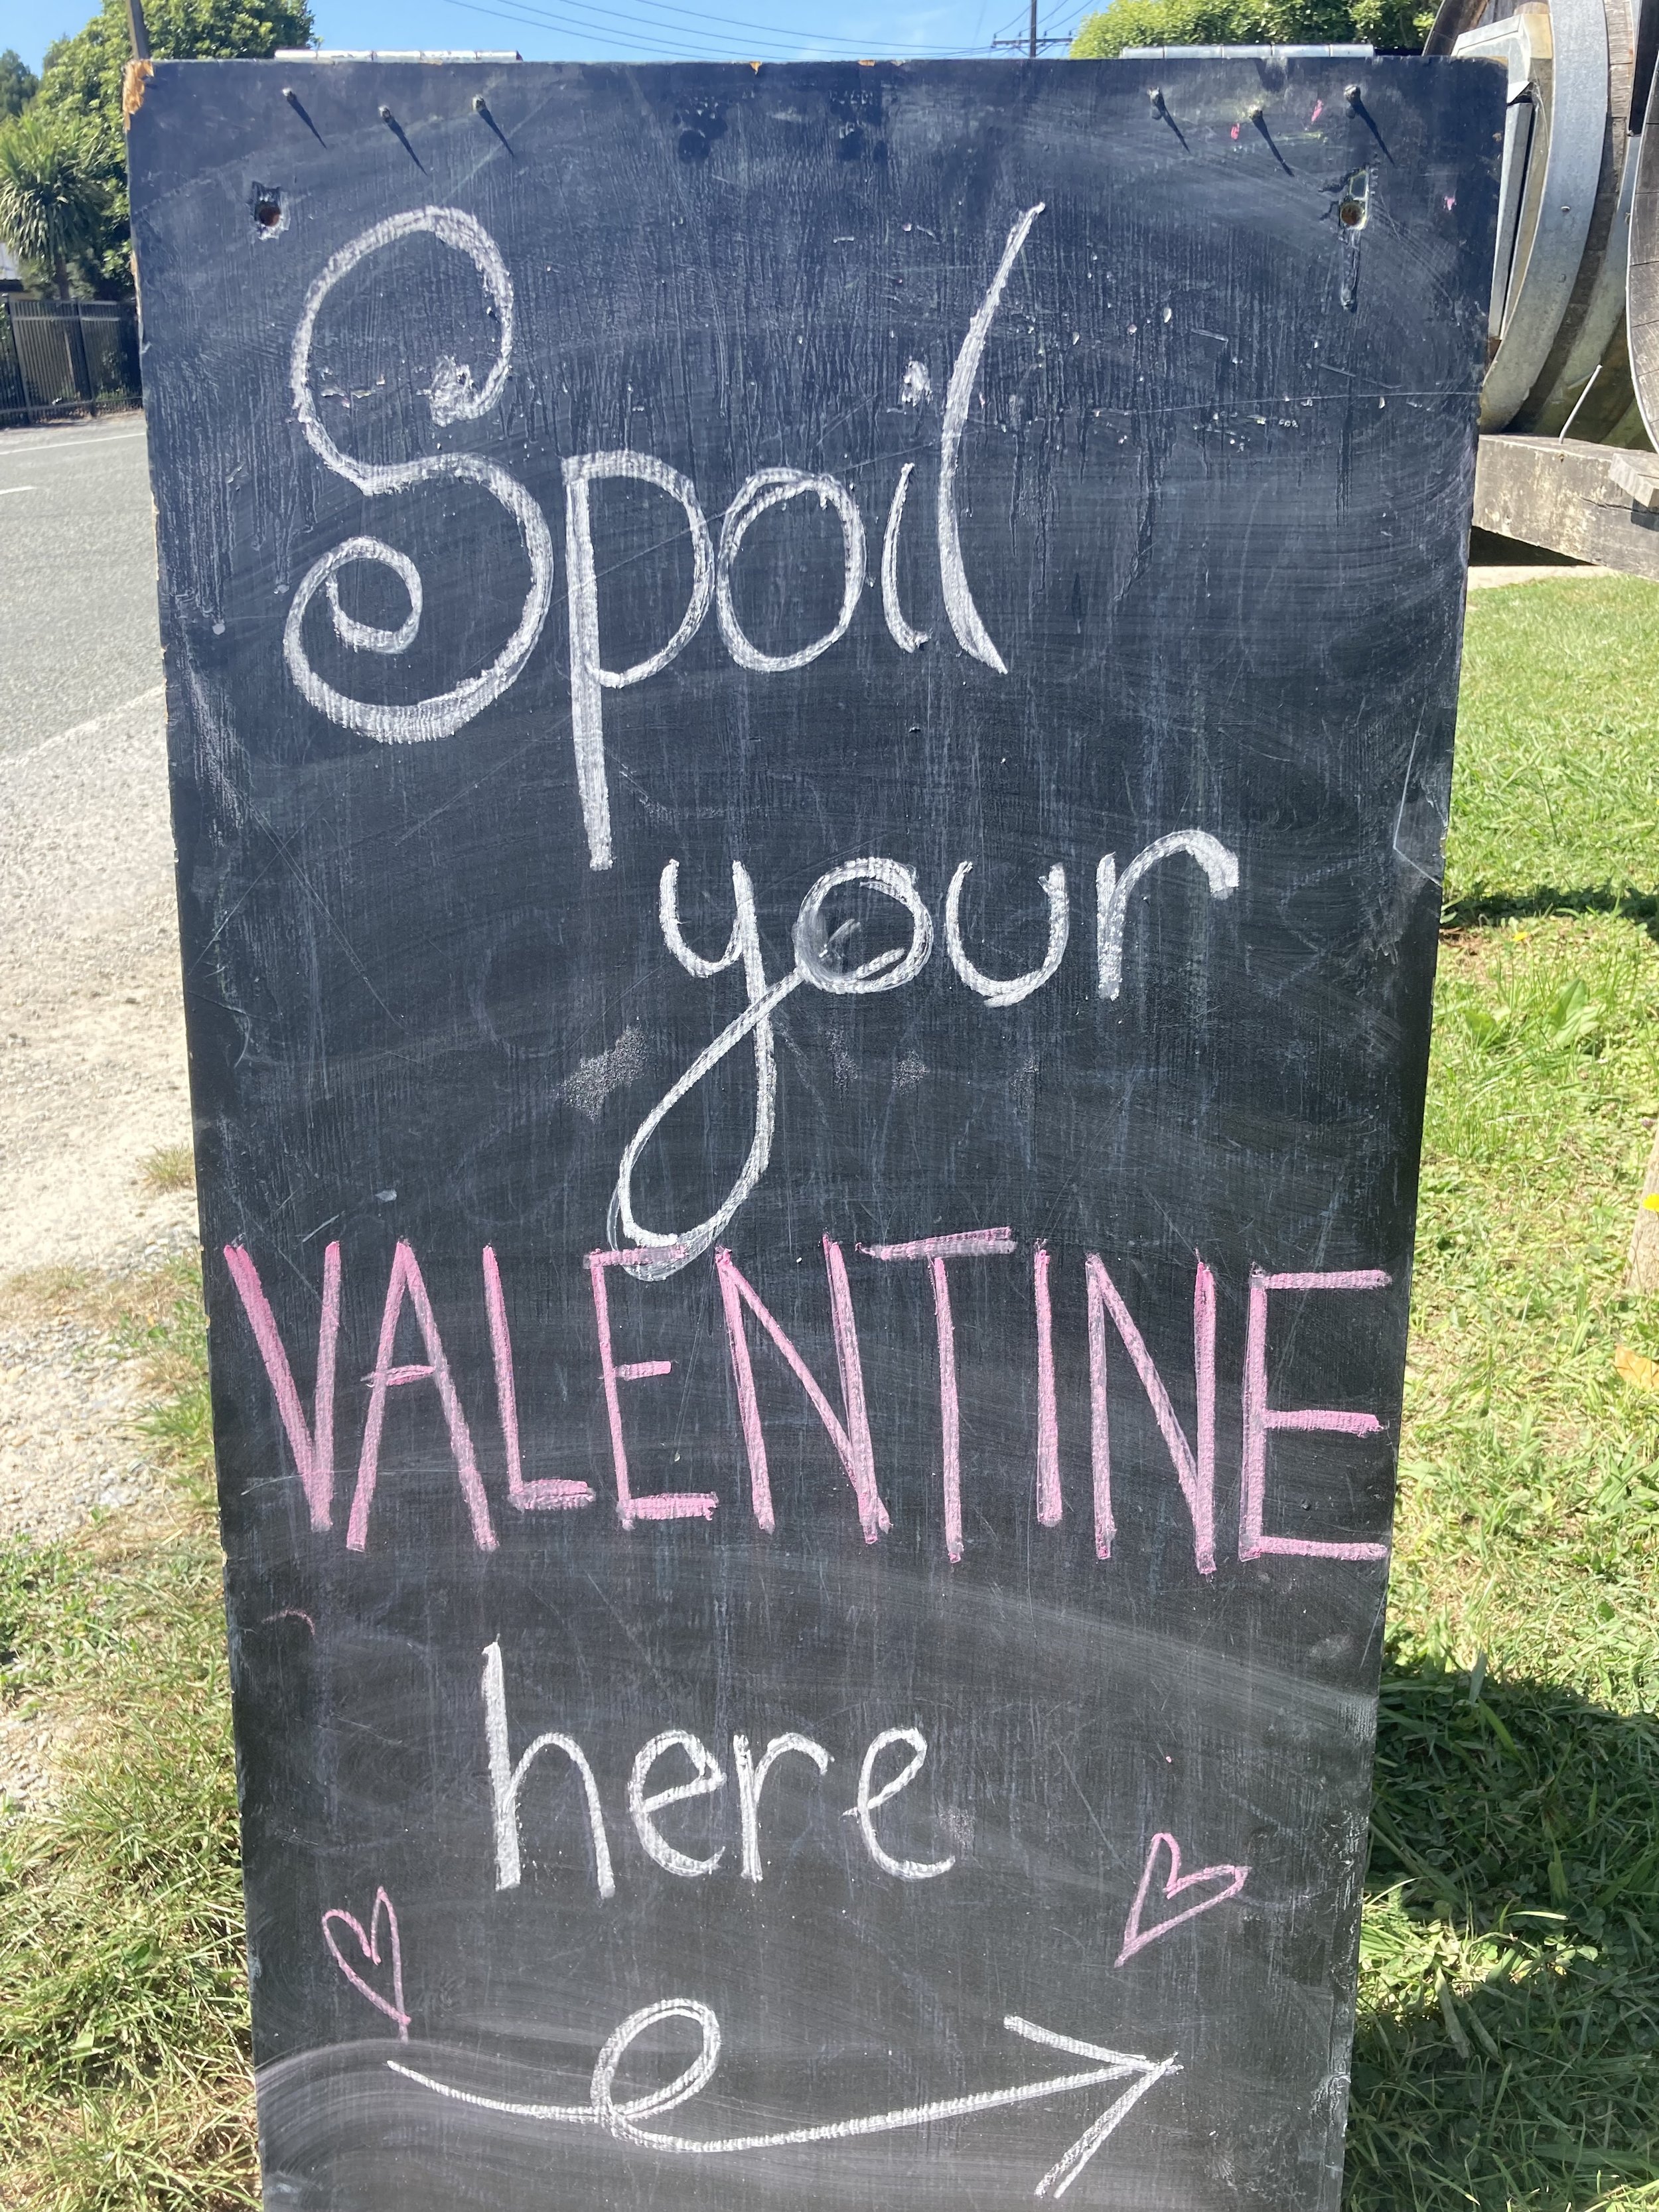 Spoil
your
VALENTINE
here